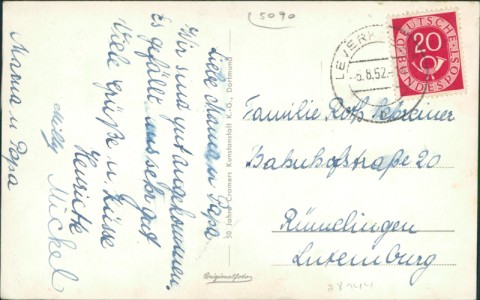 5090
Liebe Mama u. Papa
Wir sind gut angekommen.
Es gefällt uns sehr gut
Viele Grüße u. Küsse
Henriette
Milly Michel
Mama u Papa
50 Jahre Cramers Kunstanstalt K.-G., Dortmund
Originalfoto
LEVERK
-5.8.52.-
DEUTSCHE BUNDESPOST
20
Familie Roth
Bahnhofstraße 20
Rümelingen
Luxemburg